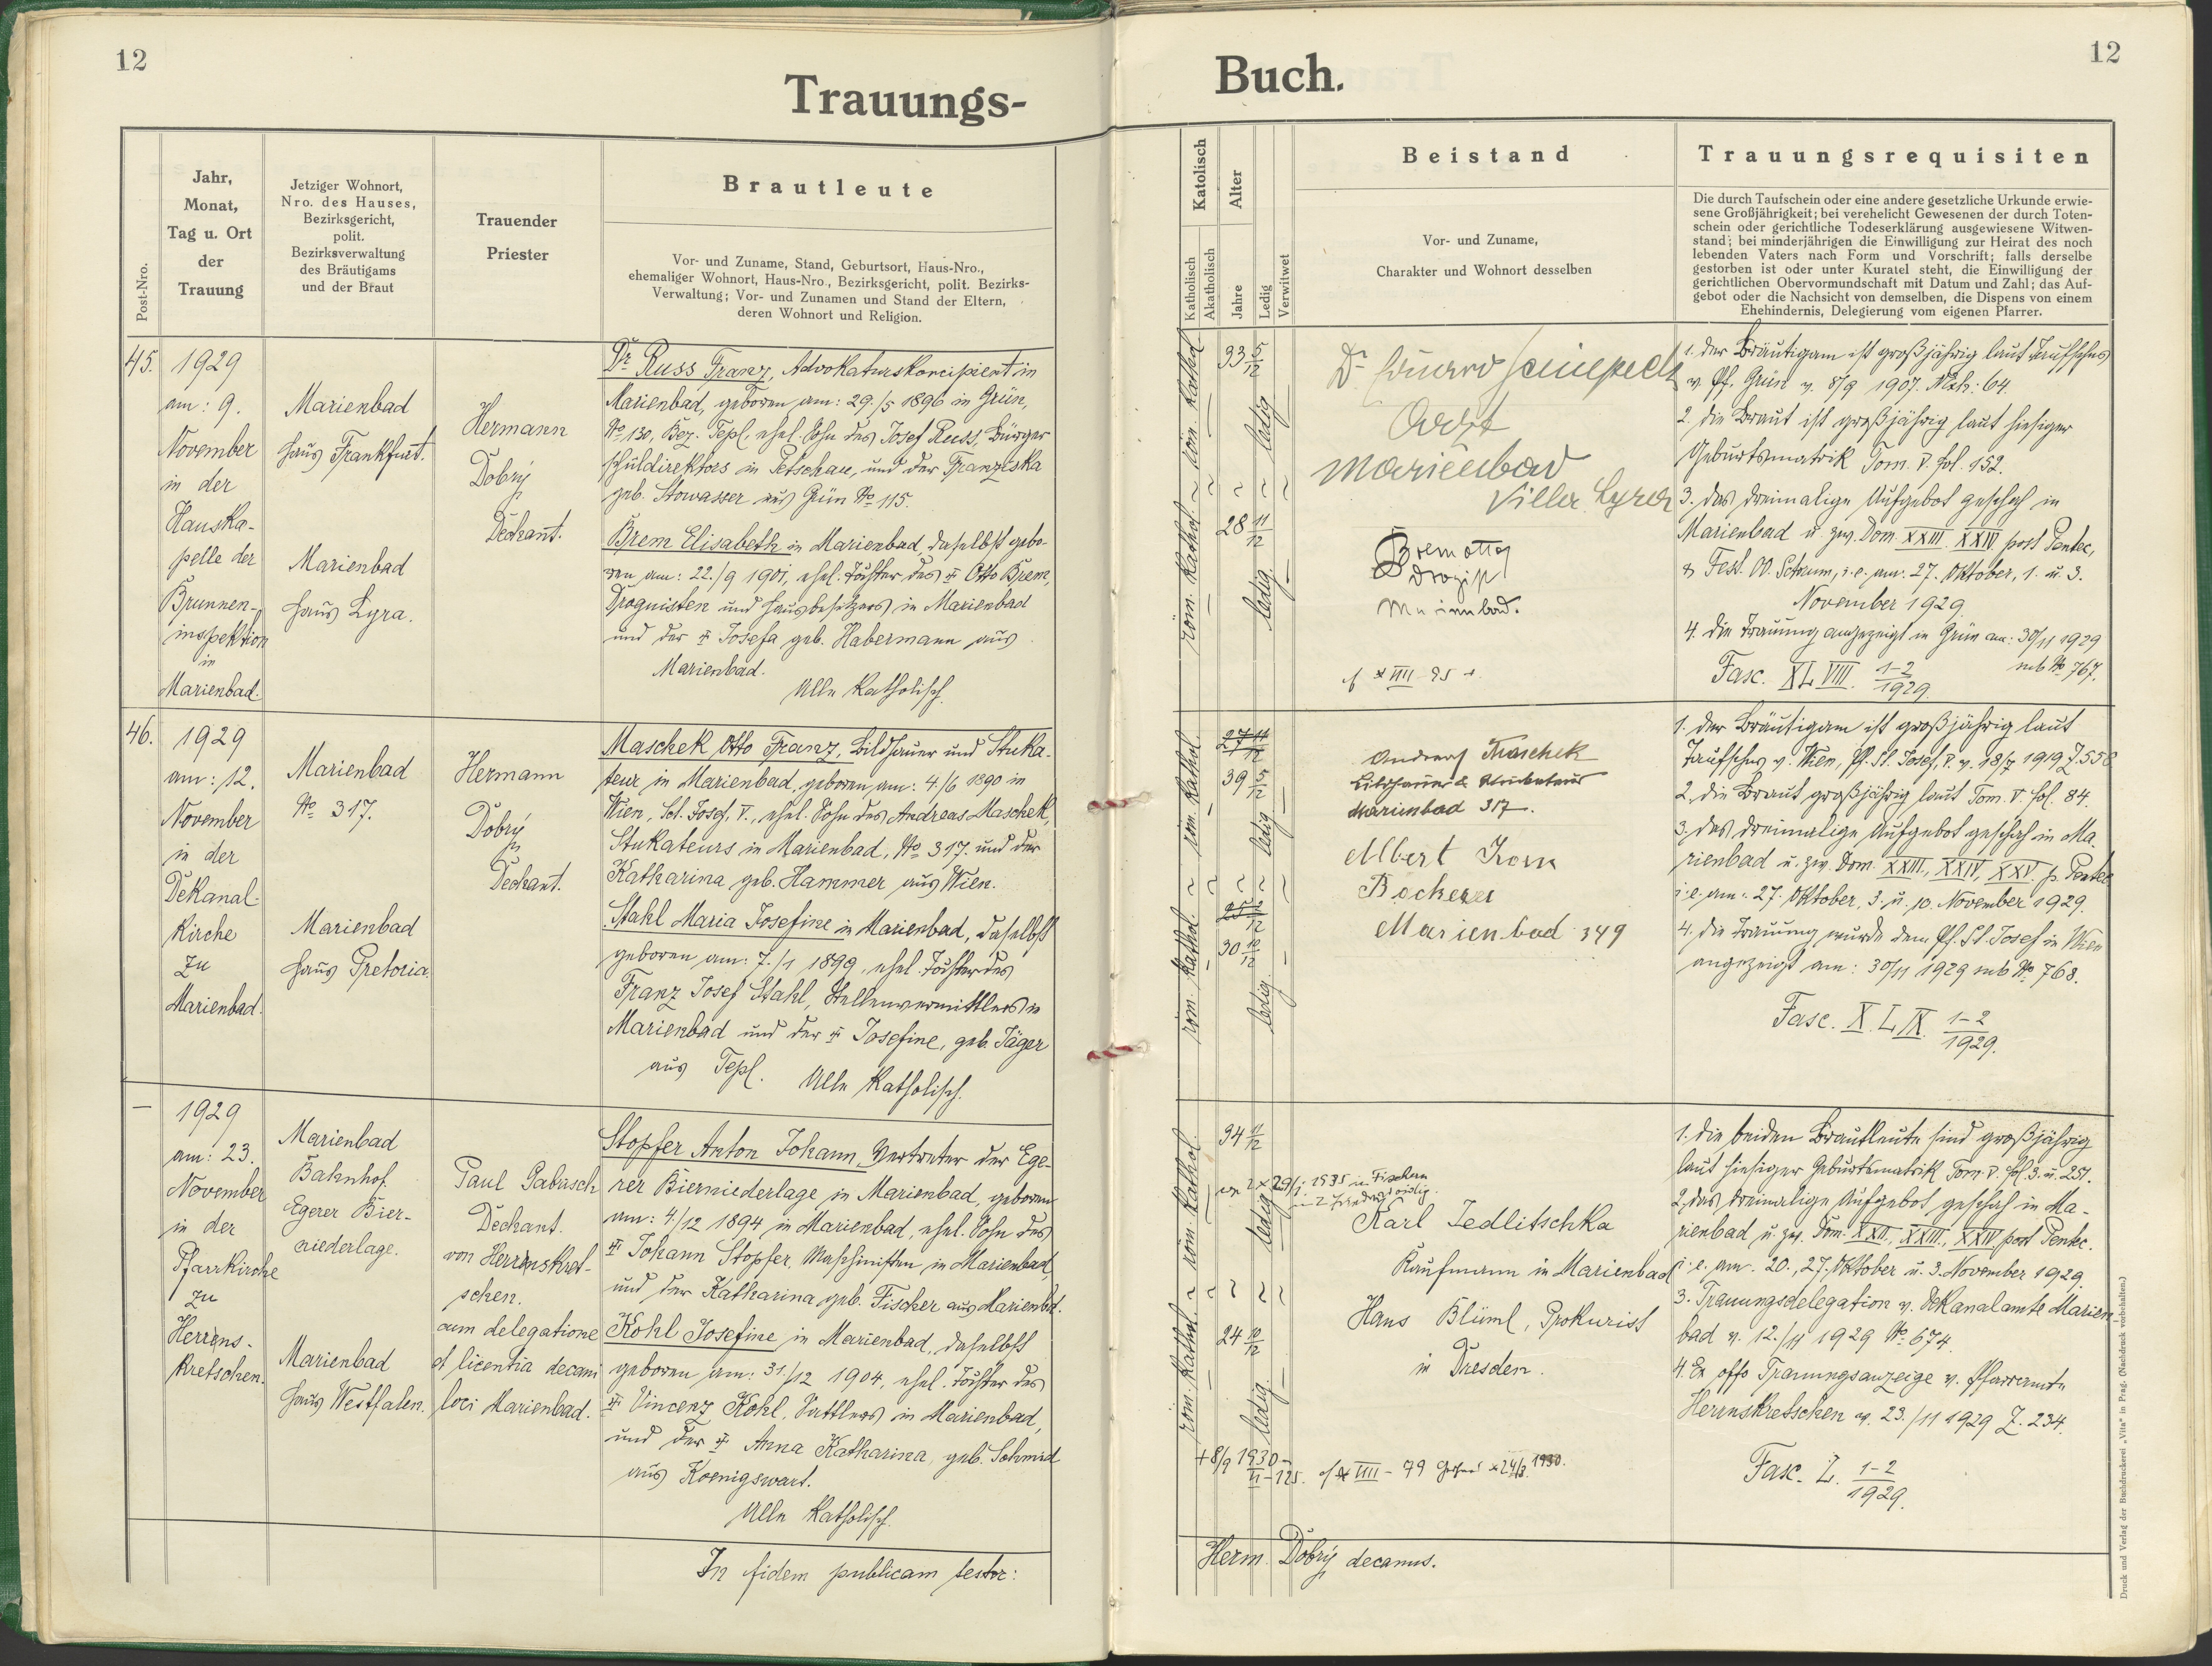 12
Trauungs-
Post-Nro.
Jahr,
Monat,
Tag u. Ort
der
Trauung
Jetziger Wohnort,
Nro. des Hauses,
Bezirksgericht,
polit.
Bezirksverwaltung
des Bräutigams
und der Braut
Trauender
Priester
Brautleute
Vor- und Zuname, Stand, Geburtsort, Haus-Nro.,
ehemaliger Wohnort, Haus-Nro., Bezirksgericht, polit. Bezirks-
Verwaltung; Vor- und Zunamen und Stand der Eltern,
deren Wohnort und Religion.
45.
1929
am: 9.
November
in der
Hauska-
pelle der
Brunnen-
inspektion
in
Marienbad.
Marienbad
Haus Frankfurt.
Marienbad
Haus Lyra.
Hermann
Dobrý
Dechant.
Dr Russ Franz, Advokaturskoncipient in
Marienbad, geboren am: 29./5 1896 in Grün,
No 130, Bez. Tepl, ehel. Sohn des Josef Russ, Bürger
schuldirektors in Petschau, und der Franziska
geb. Stowasser aus Grün No 115.
Brem Elisabeth in Marienbad, daselbst gebo-
ren am: 22./9 1901, ehel. Tochter des † Otto Brem,
Droguisten und Hausbesitzers in Marienbad
und der † Josefa geb. Habermann aus
Marienbad.
Alle katholisch.
46.
1929
am: 12.
November
in der
Dekanal-
kirche
zu
Marienbad.
Marienbad
No 317.
Marienbad
Haus Pretoria.
Hermann
Dobrý
Dechant.
Maschek Otto Franz, Bildhauer und Stuka-
teur in Marienbad, geboren am: 4./6 1890 in
Wien, Sct. Josef, V., ehel. Sohn des Andreas Maschek,
Stukateurs in Marienbad, No 317. und der
Katharina geb. Hammer aus Wien.
Stahl Maria Josefine in Marienbad, daselbst
geboren am: 7./1 1899, ehel. Tochter des
Franz Josef Stahl, Stellenvermittlers in
Marienbad und der † Josefine, geb. Jäger
aus Tepl. Alle katholisch.
—
1929
am: 23.
November
in der
Pfarrkirche
zu
Herrns-
kretschen.
Marienbad
Bahnhof.
Egerer Bier-
niederlage.
Marienbad
Haus Westfalen.
Paul Gabrisch
Dechant.
von Herrnskret-
schen.
cum delegatione
et licentia decani
loci Marienbad.
Stopfer Anton Johann, Vertreter der Ege-
rer Bierniederlage in Marienbad, geboren
am: 4/12 1894 in Marienbad, ehel. Sohn des
† Johann Stopfer, Maschinisten in Marienbad,
und der Katharina geb. Fischer aus Marienbd.
Kohl Josefine in Marienbad, daselbst
geboren am: 31./12 1904, ehel. Tochter des
† Vincenz Kohl, Sattlers in Marienbad,
und der † Anna Katharina, geb. Schmid
aus Koenigswart.
Alle katholisch.
In fidem publicam testor:
12
Buch.
Katolisch
Katholisch
Akatholisch
Alter
Jahre
Ledig
Verwitwet
Beistand
Vor- und Zuname,
Charakter und Wohnort desselben
Trauungsrequisiten
Die durch Taufschein oder eine andere gesetzliche Urkunde erwie-
sene Großjährigkeit; bei verehelicht Gewesenen der durch Toten-
schein oder gerichtliche Todeserklärung ausgewiesene Witwen-
stand; bei minderjährigen die Einwilligung zur Heirat des noch
lebenden Vaters nach Form und Vorschrift; falls derselbe
gestorben ist oder unter Kuratel steht, die Einwilligung der
gerichtlichen Obervormundschaft mit Datum und Zahl; das Auf-
gebot oder die Nachsicht von demselben, die Dispens von einem
Ehehindernis, Delegierung vom eigenen Pfarrer.
röm. kathol. ~ röm. kathol.
33 5/12
ledig
28 11/12
ledig.
Dr Eduard
Arzt
Marienbad
Villa Lyra
Brem Otto
Drogist
Marienbad.
1. Der Bräutigam ist großjährig laut Taufschns
v. Pf. Grün v. 8/9 1907. Mzh: 64.
2. Die Braut ist großjährig laut hiesiger
Geburtsmatrik Tom. V. fol. 152.
3. Das dreimalige Aufgebot geschah in
Marienbad u. zw. Dom. XXIII. XXIV. post Pentec,
& Fest. OO. Sctorum, i. e. am: 27. Oktober, 1. u. 3.
November 1929.
4. Die Trauung angezeigt in Grün am: 30/11 1929
sub No 767.
Fasc. XLVIII. 1-2/1929.
röm. kathol. ~ röm. kathol.
27 11/12
39 5/12
ledig
30 10/12
ledig.
Andreas Maschek
Bildhauer & Stukateur
Marienbad 317.
Albert Korn
Bäckerei
Marienbad 349
1. Der Bräutigam ist großjährig laut
Taufschns v. Wien, Pf. St. Josef, V. v. 18/7 1919 Z. 558
2. Die Braut großjährig laut Tom. V. fol. 84.
3. Das dreimalige Aufgebot geschah in Ma-
rienbad u. zw. Dom. XXIII., XXIV., XXV. p. Pentec
i. e. am: 27. Oktober, 3. u. 10. November 1929.
4. Die Trauung wurde dem Pf. St. Josef in Wien
angezeigt am: 30/11 1929 sub No 768.
Fasc. XLIX. 1-2/1929.
röm. kathol. ~ röm. kathol.
34 11/12
ledig
24 10/12
ledig.
1935 in Fischern
Karl Jedlitschka
Kaufmann in Marienbad
Hans Blüml, Prokurist
in Dresden.
1. Die beiden Brautleute sind großjährig
laut hiesiger Geburtsmatrik Tom. V. fol. 3. u. 251.
2. Das dreimalige Aufgebot geschah in Ma-
rienbad u. zw. Dom. XXII., XXIII., XXIV. post Pentec.
i. e. am: 20., 27. Oktober u. 3. November 1929.
3. Trauungsdelegation v. Dekanalamte Marien-
bad v. 12./11 1929 No 674.
4. Ex offo Trauungsanzeige v. Pfarramte
Herrnskretschen v. 23./11 1929 Z. 234.
Fasc. L. 1-2/1929.
+8/9 1930
Herm. Dobrý decanus.
Druck und Verlag der Buchdruckerei „Vita" in Prag. (Nachdruck vorbehalten.)